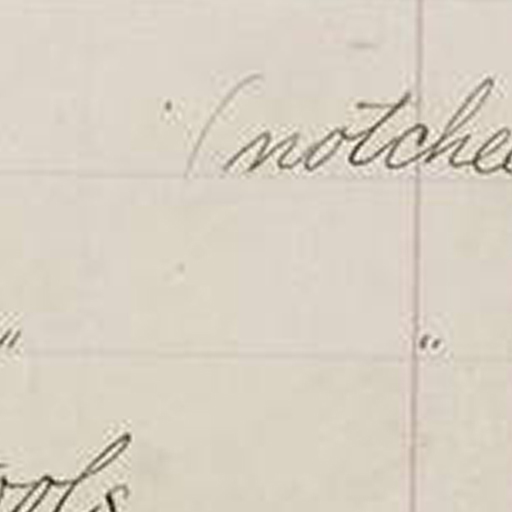 (notche
" "
ools